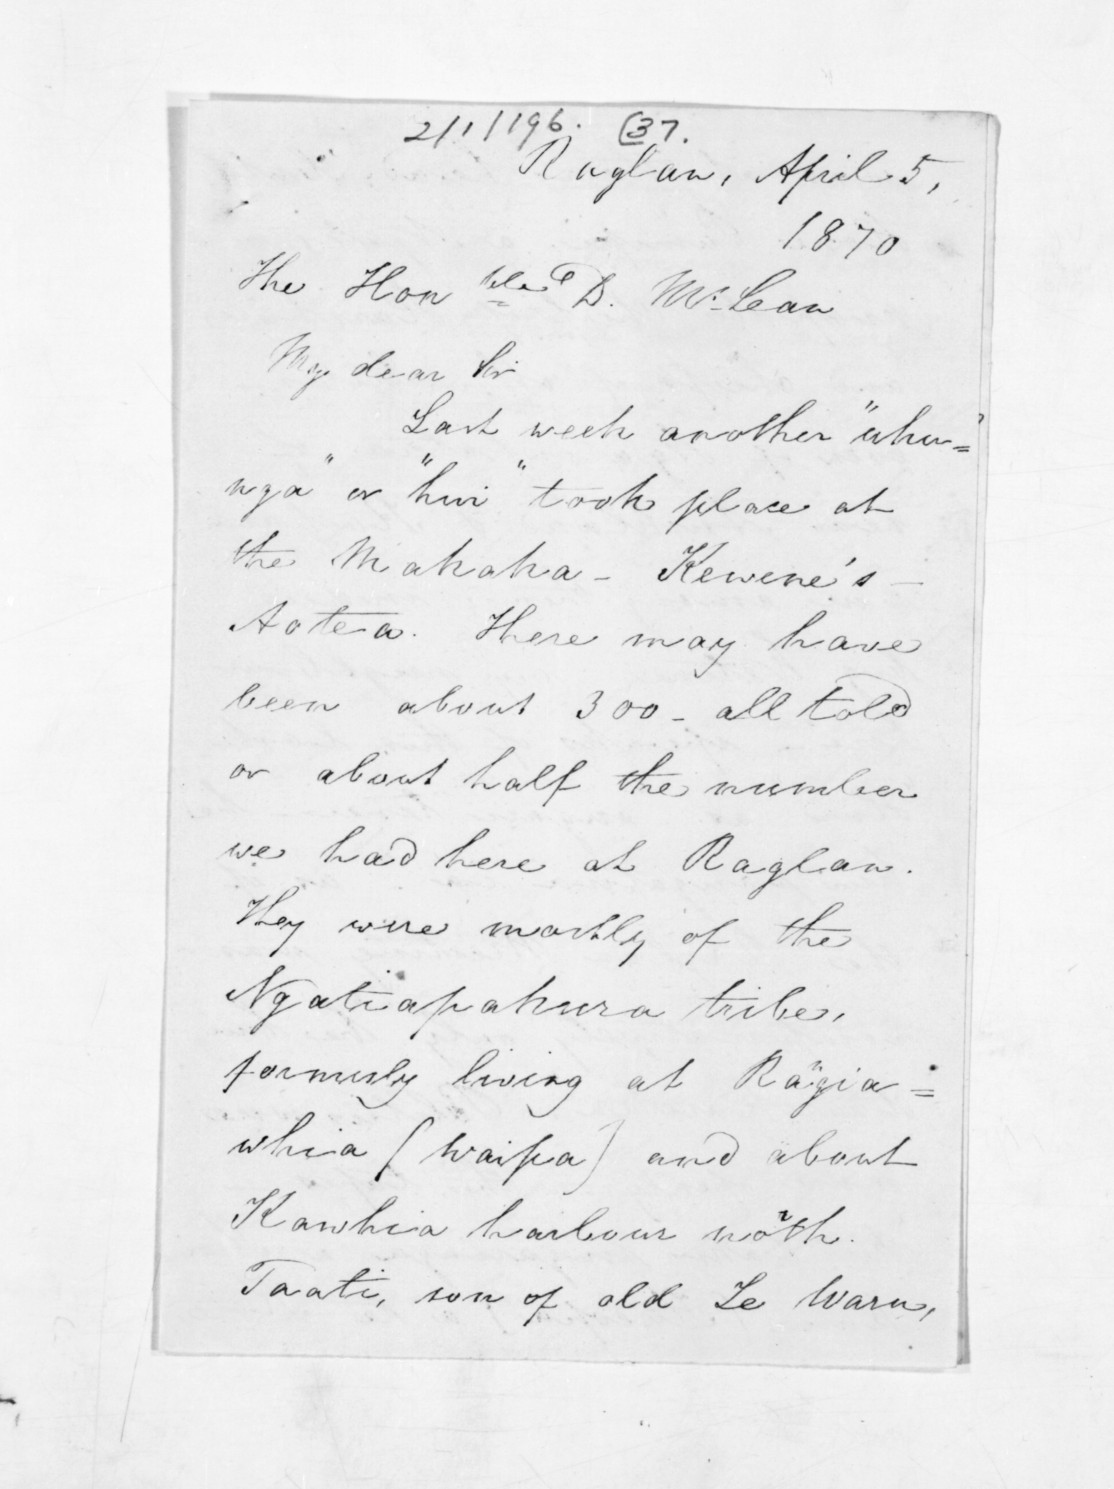 2/1/196. (37.
Raglan, April 5,
1870
The Honble D. McLean
My dear Sir
Last week another "uhu=
nga" or "hui" took place at
the Makaka - Kewene's -
Aotea. There may have
been about 300 - all told
or about half the number
we had here at Raglan.
They were mostly of the
Ngatiapakura tribe,
formerly living at Rangia=
whia (Waipa) and about
Kawhia harbour north.
Taati, son of old Te Waru,